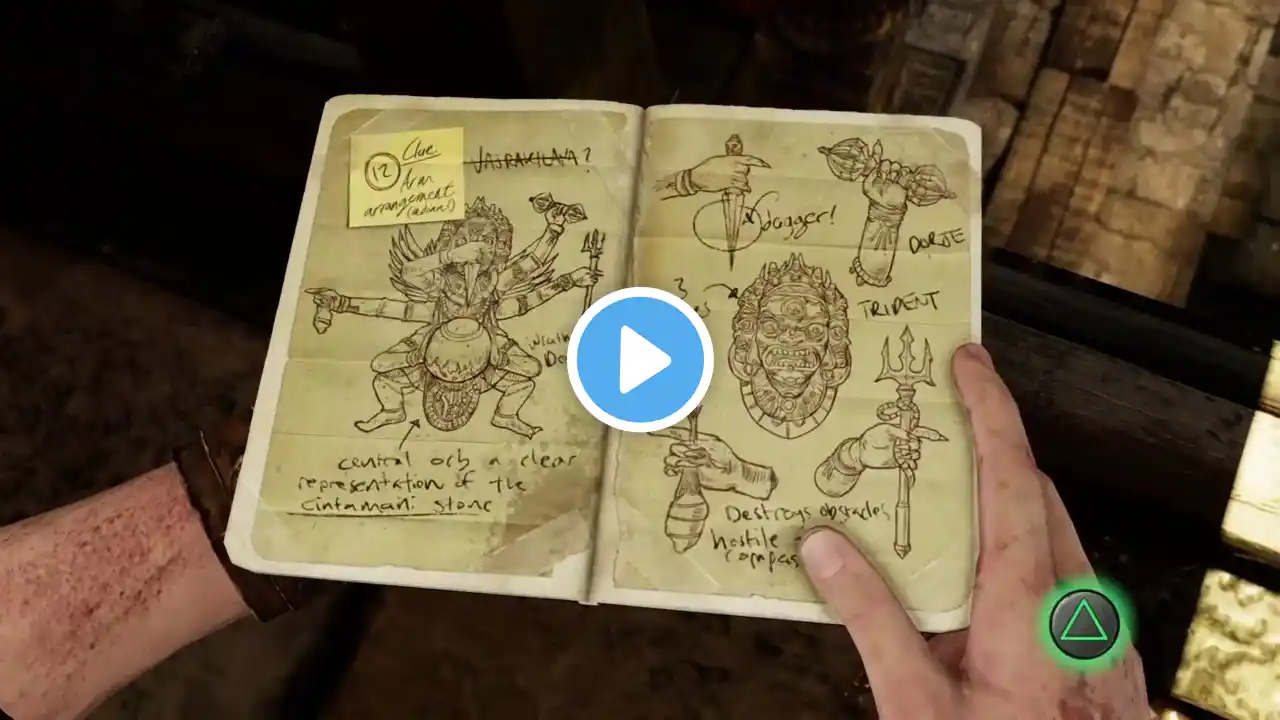 12
Clue
Arm
arrangement
VAJRAKILAYA?
central orb a clear
representation of the
Cintamani Stone
dagger!
DORJE
3
TRIDENT
Destroys obstacles
hostile
compas